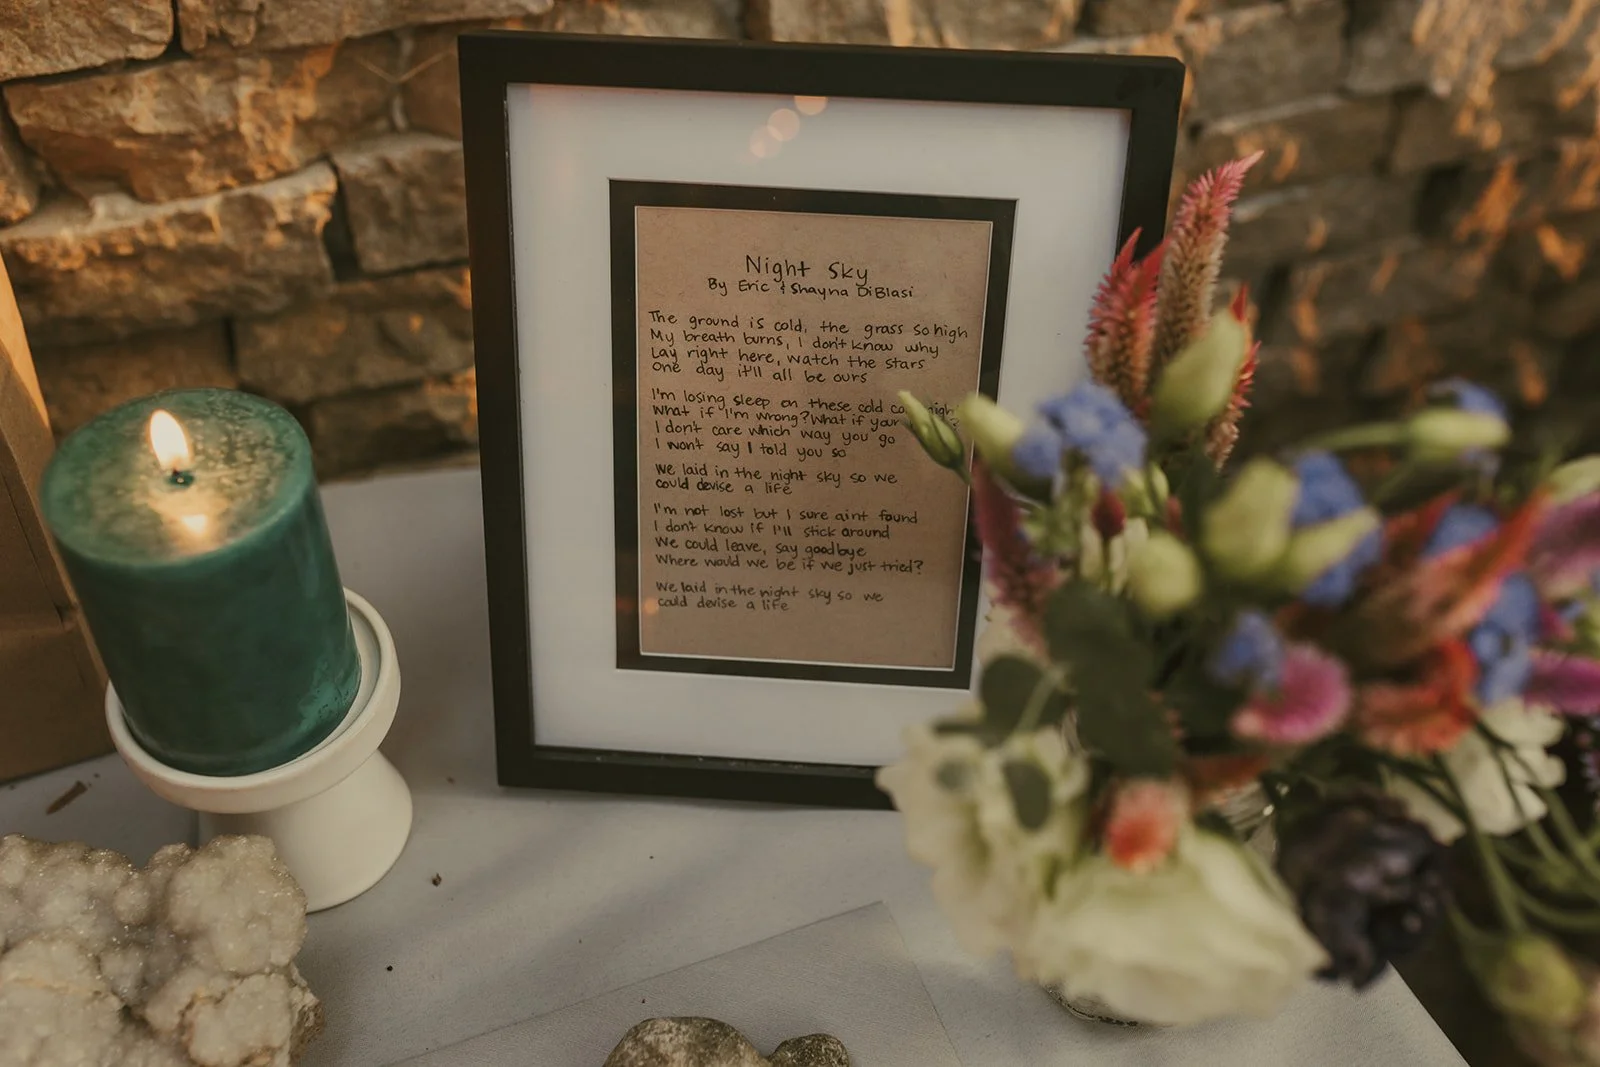 Night Sky
By Eric & Shayna DiBlasi
The ground is cold, the grass so high
My breath burns, I don't know why
Lay right here, watch the stars
One day it'll all be ours
I'm losing sleep on these cold
What if I'm wrong? What if your
I don't care which way you go
I won't say I told you so
We laid in the night sky so we
could devise a life
I'm not lost but I sure aint found
I don't know if I'll stick around
We could leave, say goodbye
Where would we be if we just tried?
We laid in the night sky so we
could devise a life